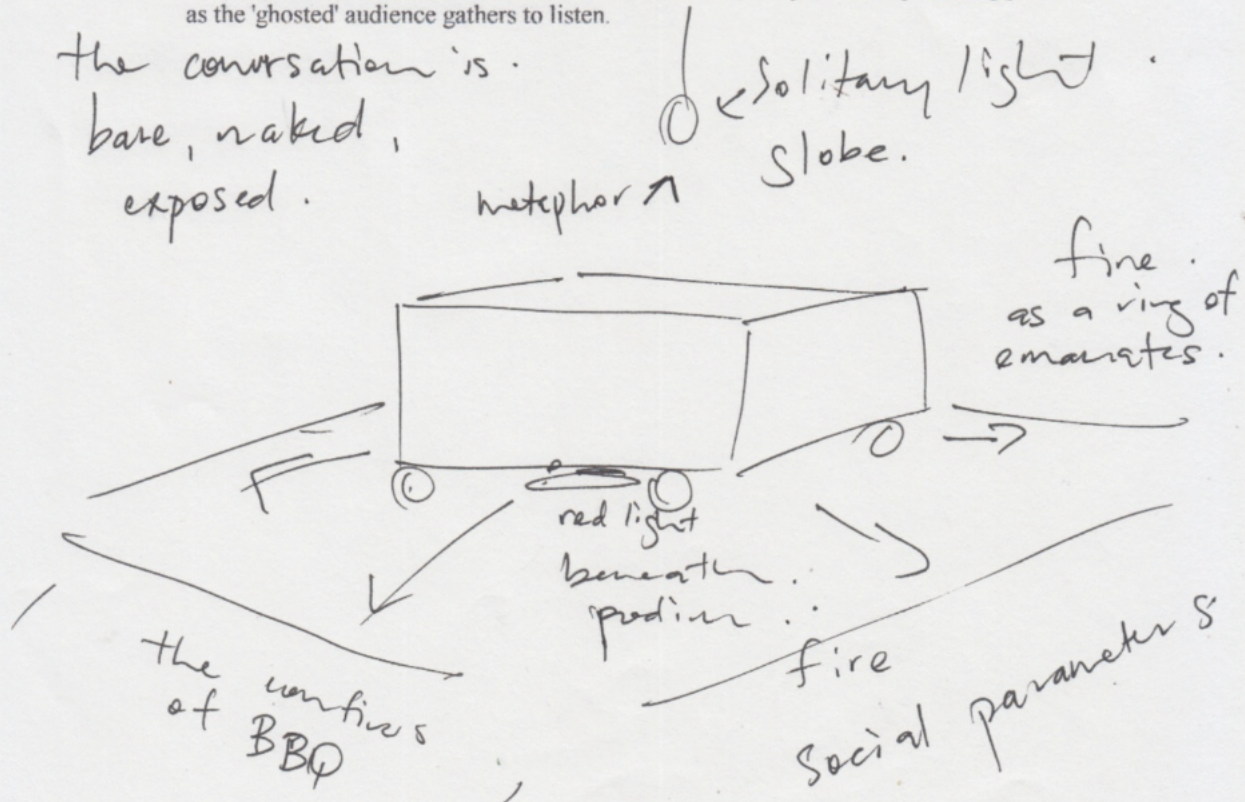 as the 'ghosted' audience gathers to listen.
the conversation is.
bare, naked,
exposed.
Solitary light
globe.
metaphor
fire.
as a ring of
emanates.
red light
beneath
podium
the confines
of BBQ
fire
social parameters